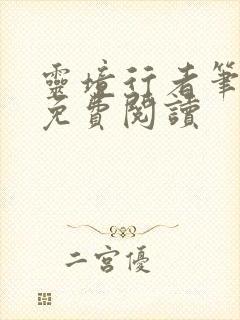 靈境行者筆
免費閱讀
二宮優